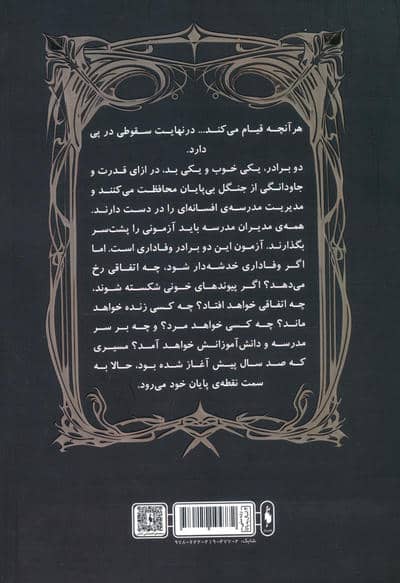 هر آنچه قیام می‌کند... درنهایت سقوطی در پی
دارد.
دو برادر، یکی خوب و یکی بد، در ازای قدرت و
جاودانگی از جنگل بی‌پایان محافظت می‌کنند و
مدیریت مدرسه‌ی افسانه‌ای را در دست دارند.
همه‌ی مدیران مدرسه باید آزمونی را پشت‌سر
بگذارند. آزمون این دو برادر وفاداری است. اما
اگر وفاداری خدشه‌دار شود، چه اتفاقی رخ
می‌دهد؟ اگر پیوندهای خونی شکسته شوند،
چه اتفاقی خواهد افتاد؟ چه کسی زنده خواهد
ماند؟ چه کسی خواهد مرد؟ و چه بر سر
مدرسه و دانش‌آموزانش خواهد آمد؟ مسیری
که صد سال پیش آغاز شده بود، حالا به
سمت نقطه‌ی پایان خود می‌رود.